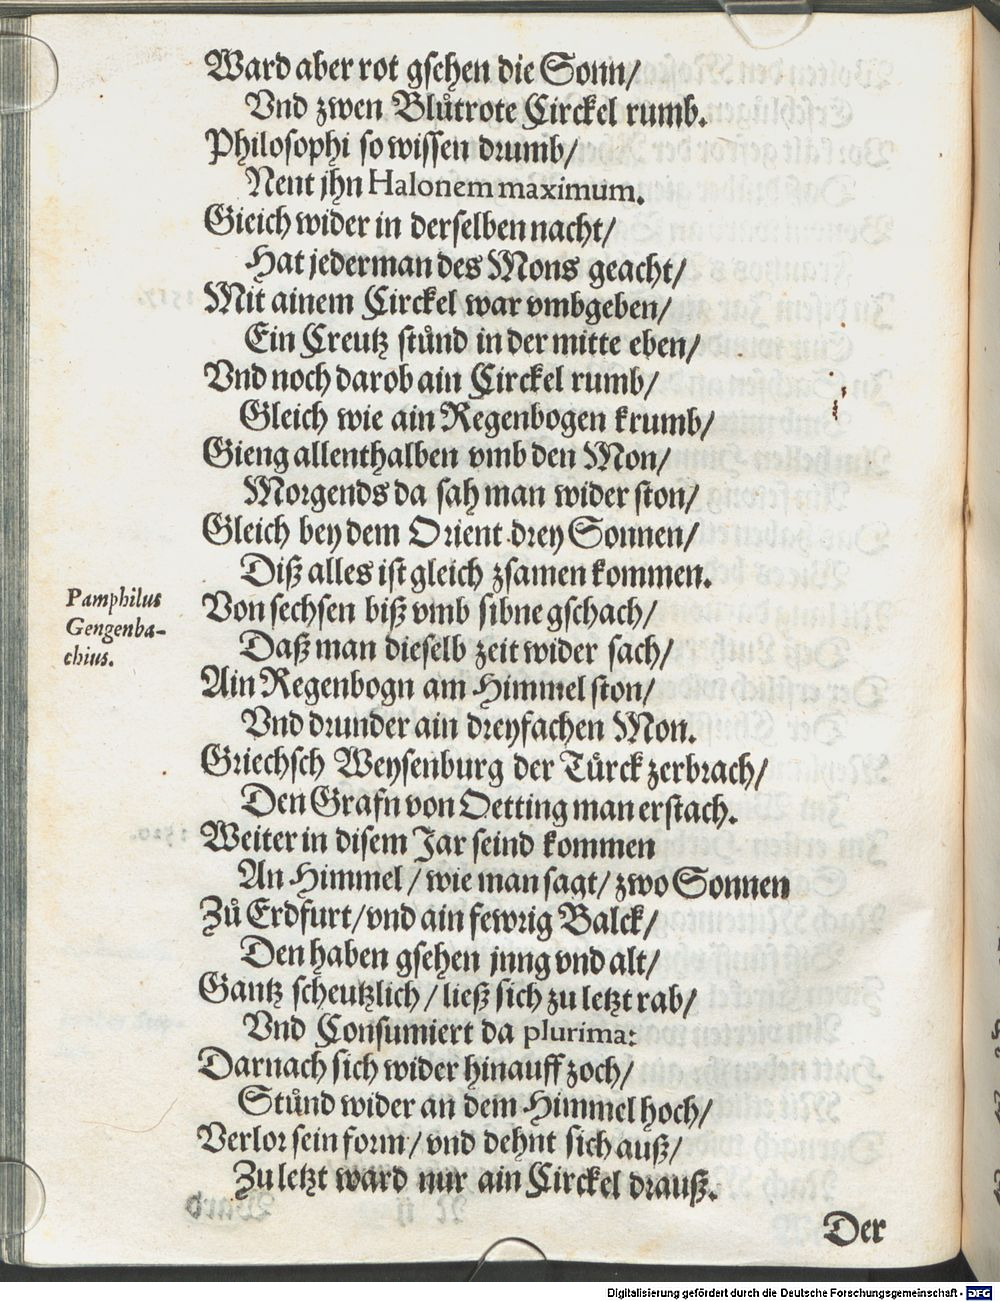 Ward aber rot gsehen die Sonn/
Vnd zwen Blůtrote Circkel rumb.
Philosophi so wissen drumb/
Nent jhn Halonem maximum.
Gleich wider in derselben nacht/
Hat jederman des Mons geacht/
Mit ainem Circkel war vmbgeben/
Ein Creutz stůnd in der mitte eben/
Vnd noch darob ain Circkel rumb/
Gleich wie ain Regenbogen krumb/
Gieng allenthalben vmb den Mon/
Morgends da sah man wider ston/
Gleich bey dem Orient drey Sonnen/
Diß alles ist gleich zsamen kommen.
Pamphilus
Gengenba-
chius.
Von sechsen biß vmb sibne gschach/
Daß man dieselb zeit wider sach/
Ain Regenbogn am Himmel ston/
Vnd drunder ain dreyfachen Mon.
Griechsch Weysenburg der Türck zerbrach/
Den Grafn von Oetting man erstach.
Weiter in disem Jar seind kommen
An Himmel/ wie man sagt/ zwo Sonnen
Zů Erdfurt/ vnd ain fewrig Balck/
Den haben gsehen jung vnd alt/
Gantz scheutzlich/ ließ sich zu letzt rab/
Vnd Consumiert da plurima:
Darnach sich wider hinauff zoch/
Stůnd wider an dem Himmel hoch/
Verlor sein form/ vnd dehnt sich auß/
Zu letzt ward nur ain Circkel drauß.
Der
Digitalisierung gefördert durch die Deutsche Forschungsgemeinschaft - DFG